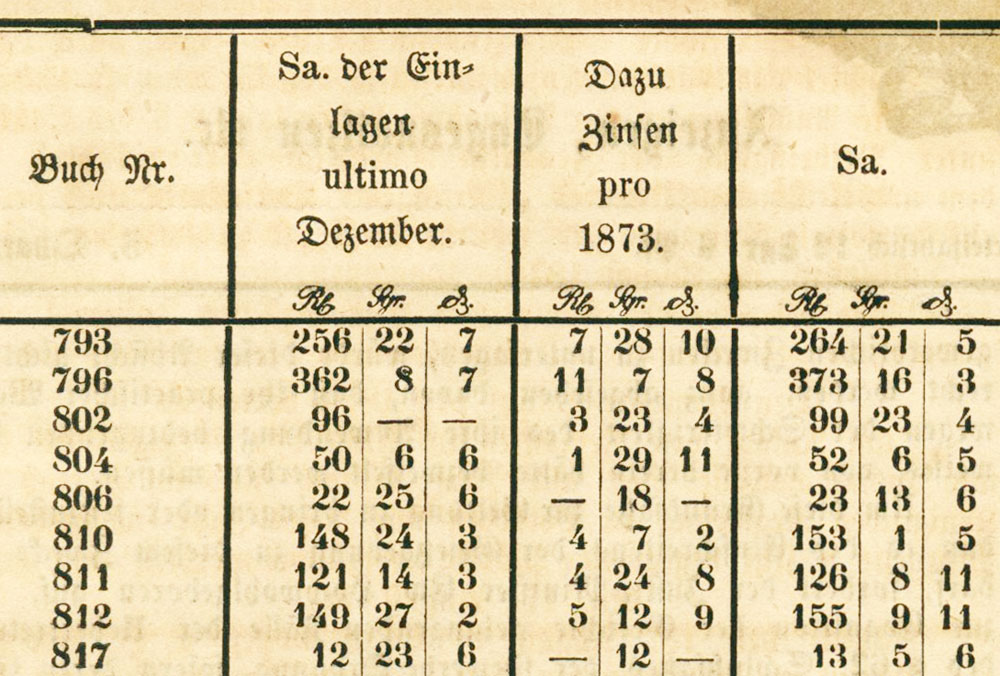 Buch Nr.
Sa. der Ein-
lagen
ultimo
Dezember.
Dazu
Zinsen
pro
1873.
Sa.
Rℓ Sgr. ₰. Rℓ Sgr. ₰. Rℓ Sgr. ₰.
793 256 22 7 7 28 10 264 21 5
796 362 8 7 11 7 8 373 16 3
802 96 — — 3 23 4 99 23 4
804 50 6 6 1 29 11 52 6 5
806 22 25 6 — 18 — 23 13 6
810 148 24 3 4 7 2 153 1 5
811 121 14 3 4 24 8 126 8 11
812 149 27 2 5 12 9 155 9 11
817 12 23 6 — 12 — 13 5 6